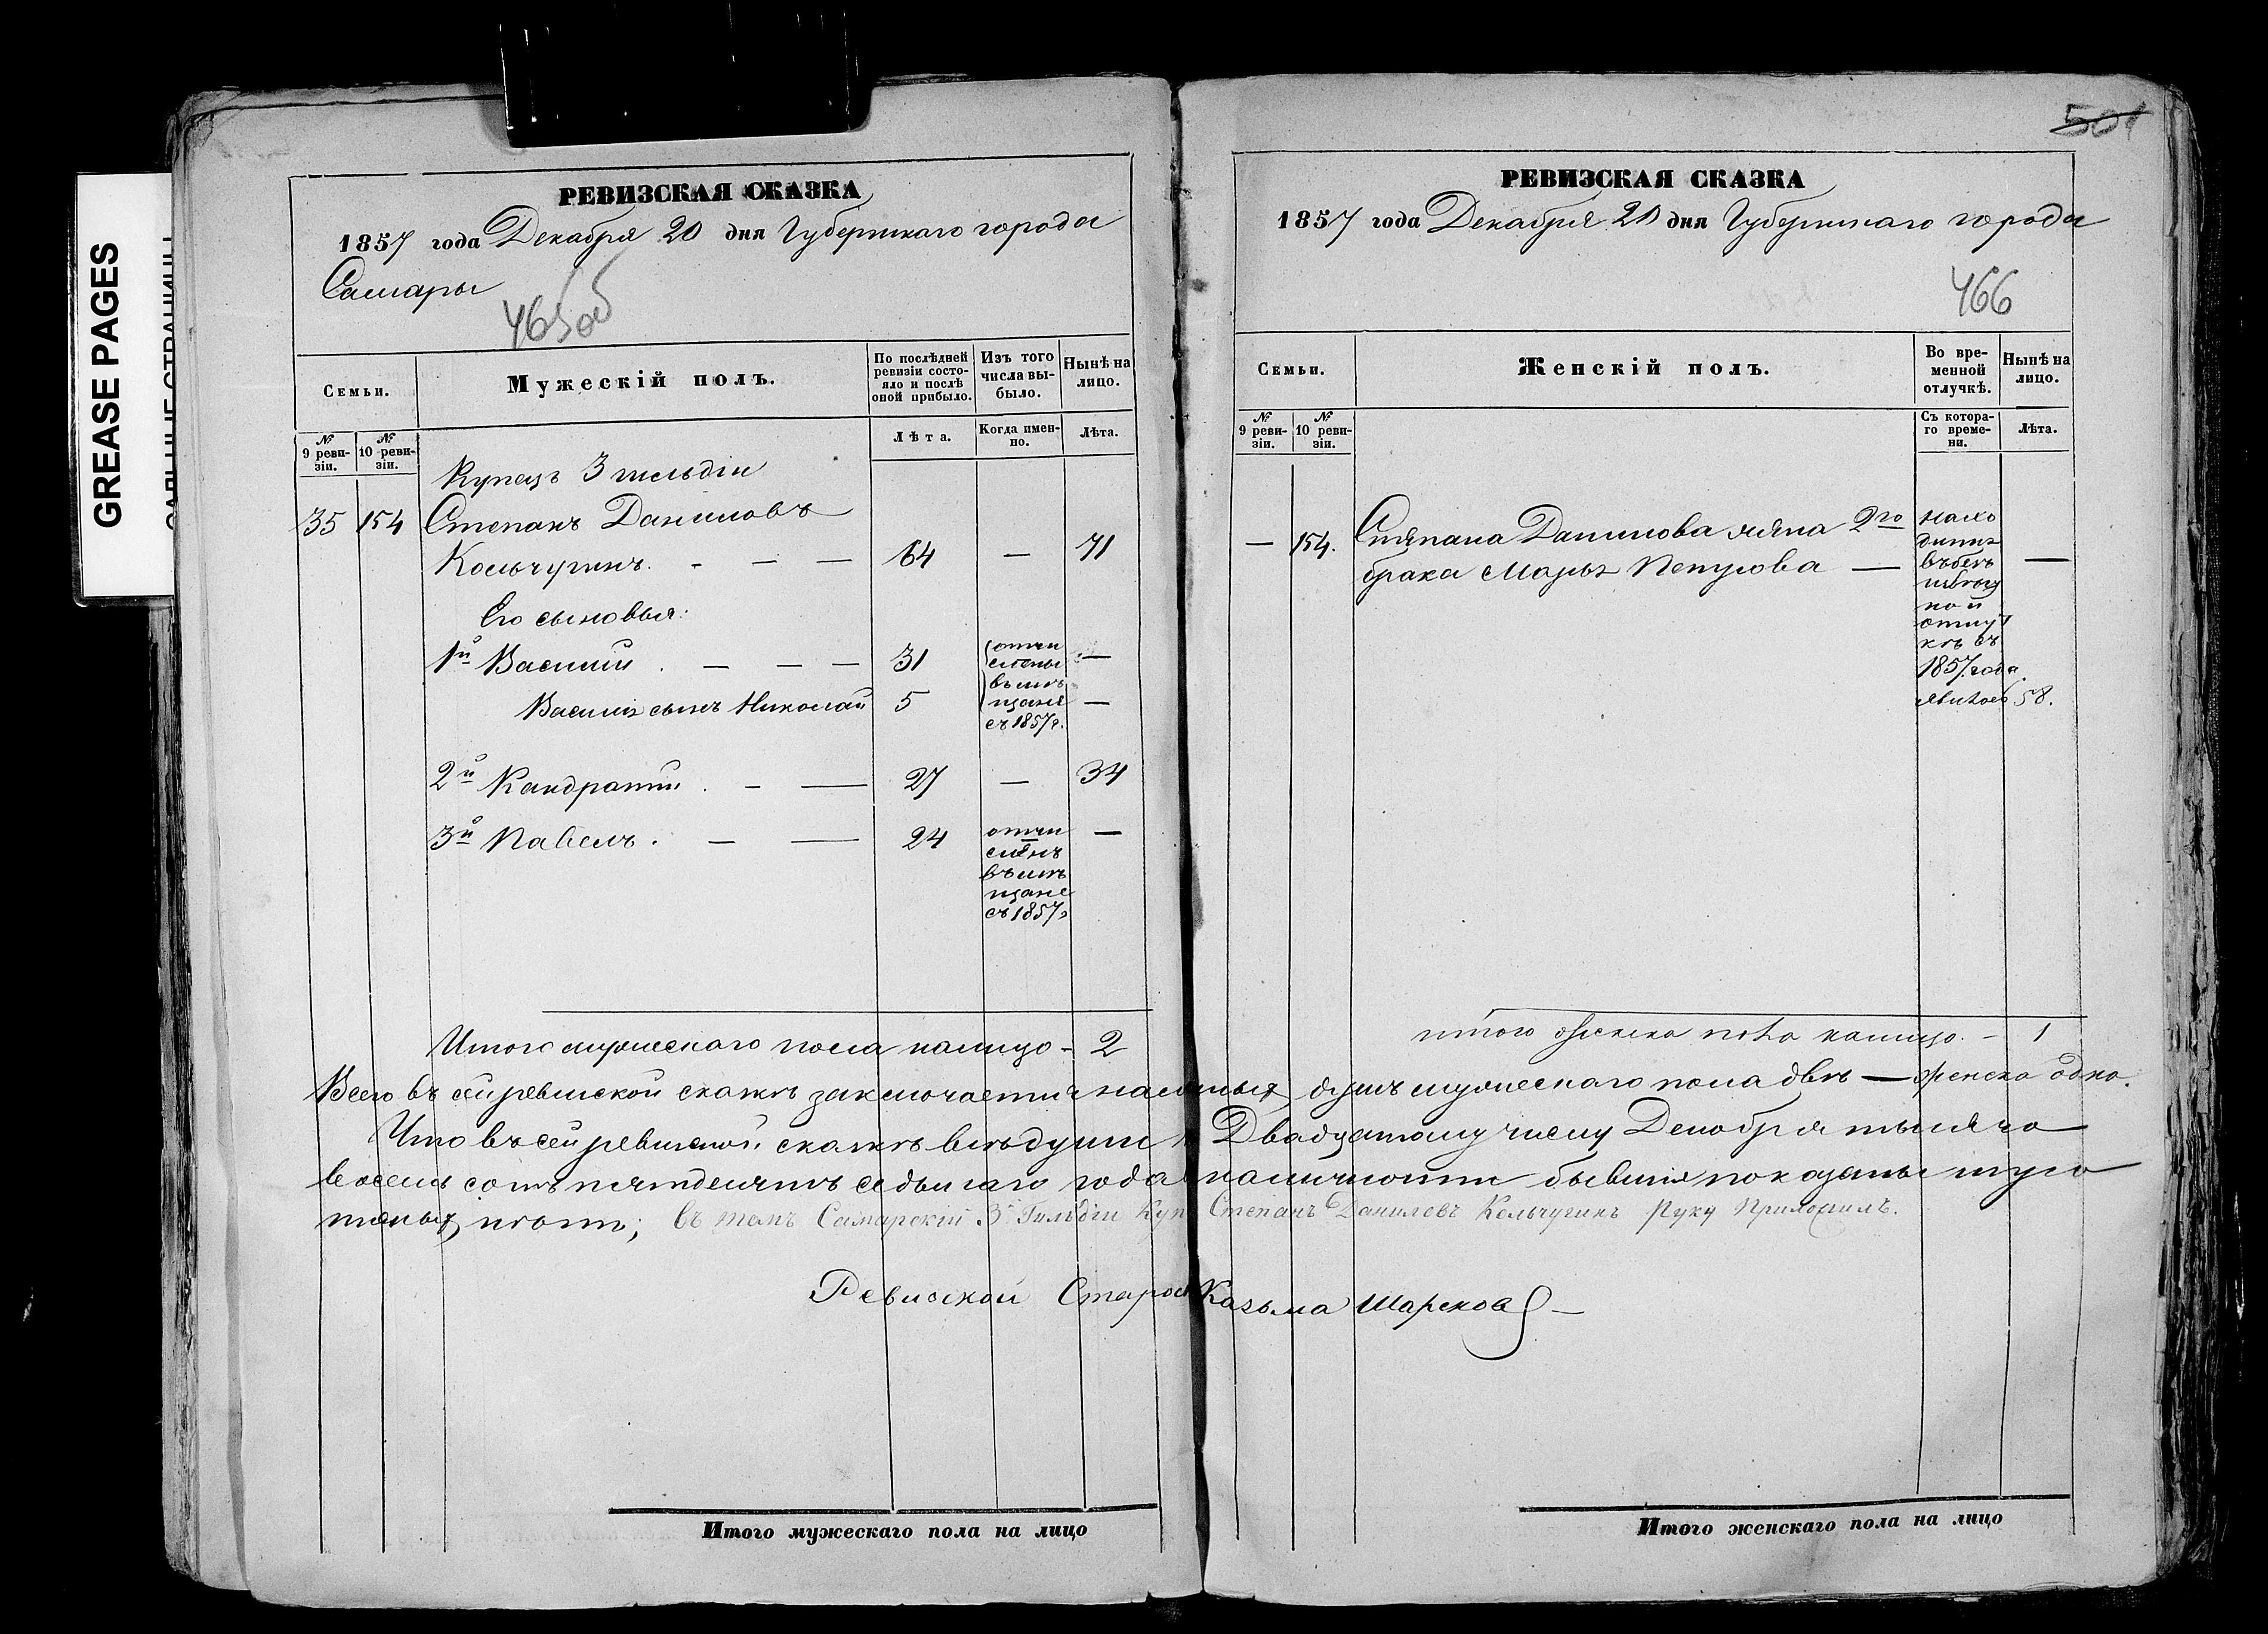 GREASE PAGES
РЕВИЗСКАЯ СКАЗКА
1857 года Декабря 20 дня Губернскаго города
Самары
465об
Семьи.
Мужескій полъ.
По послѣдней ревизіи состояло и послѣ оной прибыло.
Изъ того числа выбыло.
Нынѣ на лицо.
№ 9 ревизіи.
№ 10 ревизіи.
Лѣта.
Когда именно.
Лѣта.
Купецъ 3 гильдіи
35 154 Степанъ Даниловъ
Кольчугинъ. - — — 64 — 71
Его сыновья:
1й Василій . — — — 31 —
Василія сынъ Николай 5 —
отчислены въ мѣщане съ 1857 г.
2й Кандратій . - — 27 — 34
3й Павелъ . — — 24 —
отчисленъ въ мѣщане съ 1857 г
Итого мужескаго пола налицо - 2
501
РЕВИЗСКАЯ СКАЗКА
1857 года Декабря 20 дня Губернскаго города
466
Семьи.
Женскій полъ.
Во временной отлучкѣ.
Нынѣ на лицо.
№ 9 ревизіи.
№ 10 ревизіи.
Съ котораго времени.
Лѣта.
— 154. Степана Данилова жена 2го
брака Марья Петрова — —
1857 года
58.
итого женска пола налицо. - 1
Всего въ сей ревиской сказкѣ заключается наличныхъ душъ мужескаго пола двѣ — женска одна.
Что въ сей ревиской сказкѣ всѣ души к Двадцатому числу Декабря тысяча
восемь сотъ пятдесятъ седьмаго года в наличности бывшія показаны
нѣтъ; въ томъ Самарскій 3й Гильдіи Куп Степанъ Даниловъ Кольчугинъ Руку Приложилъ.
Ревиской Старос Казьма Шарековъ —
Итого мужескаго пола на лицо
Итого женскаго пола на лицо